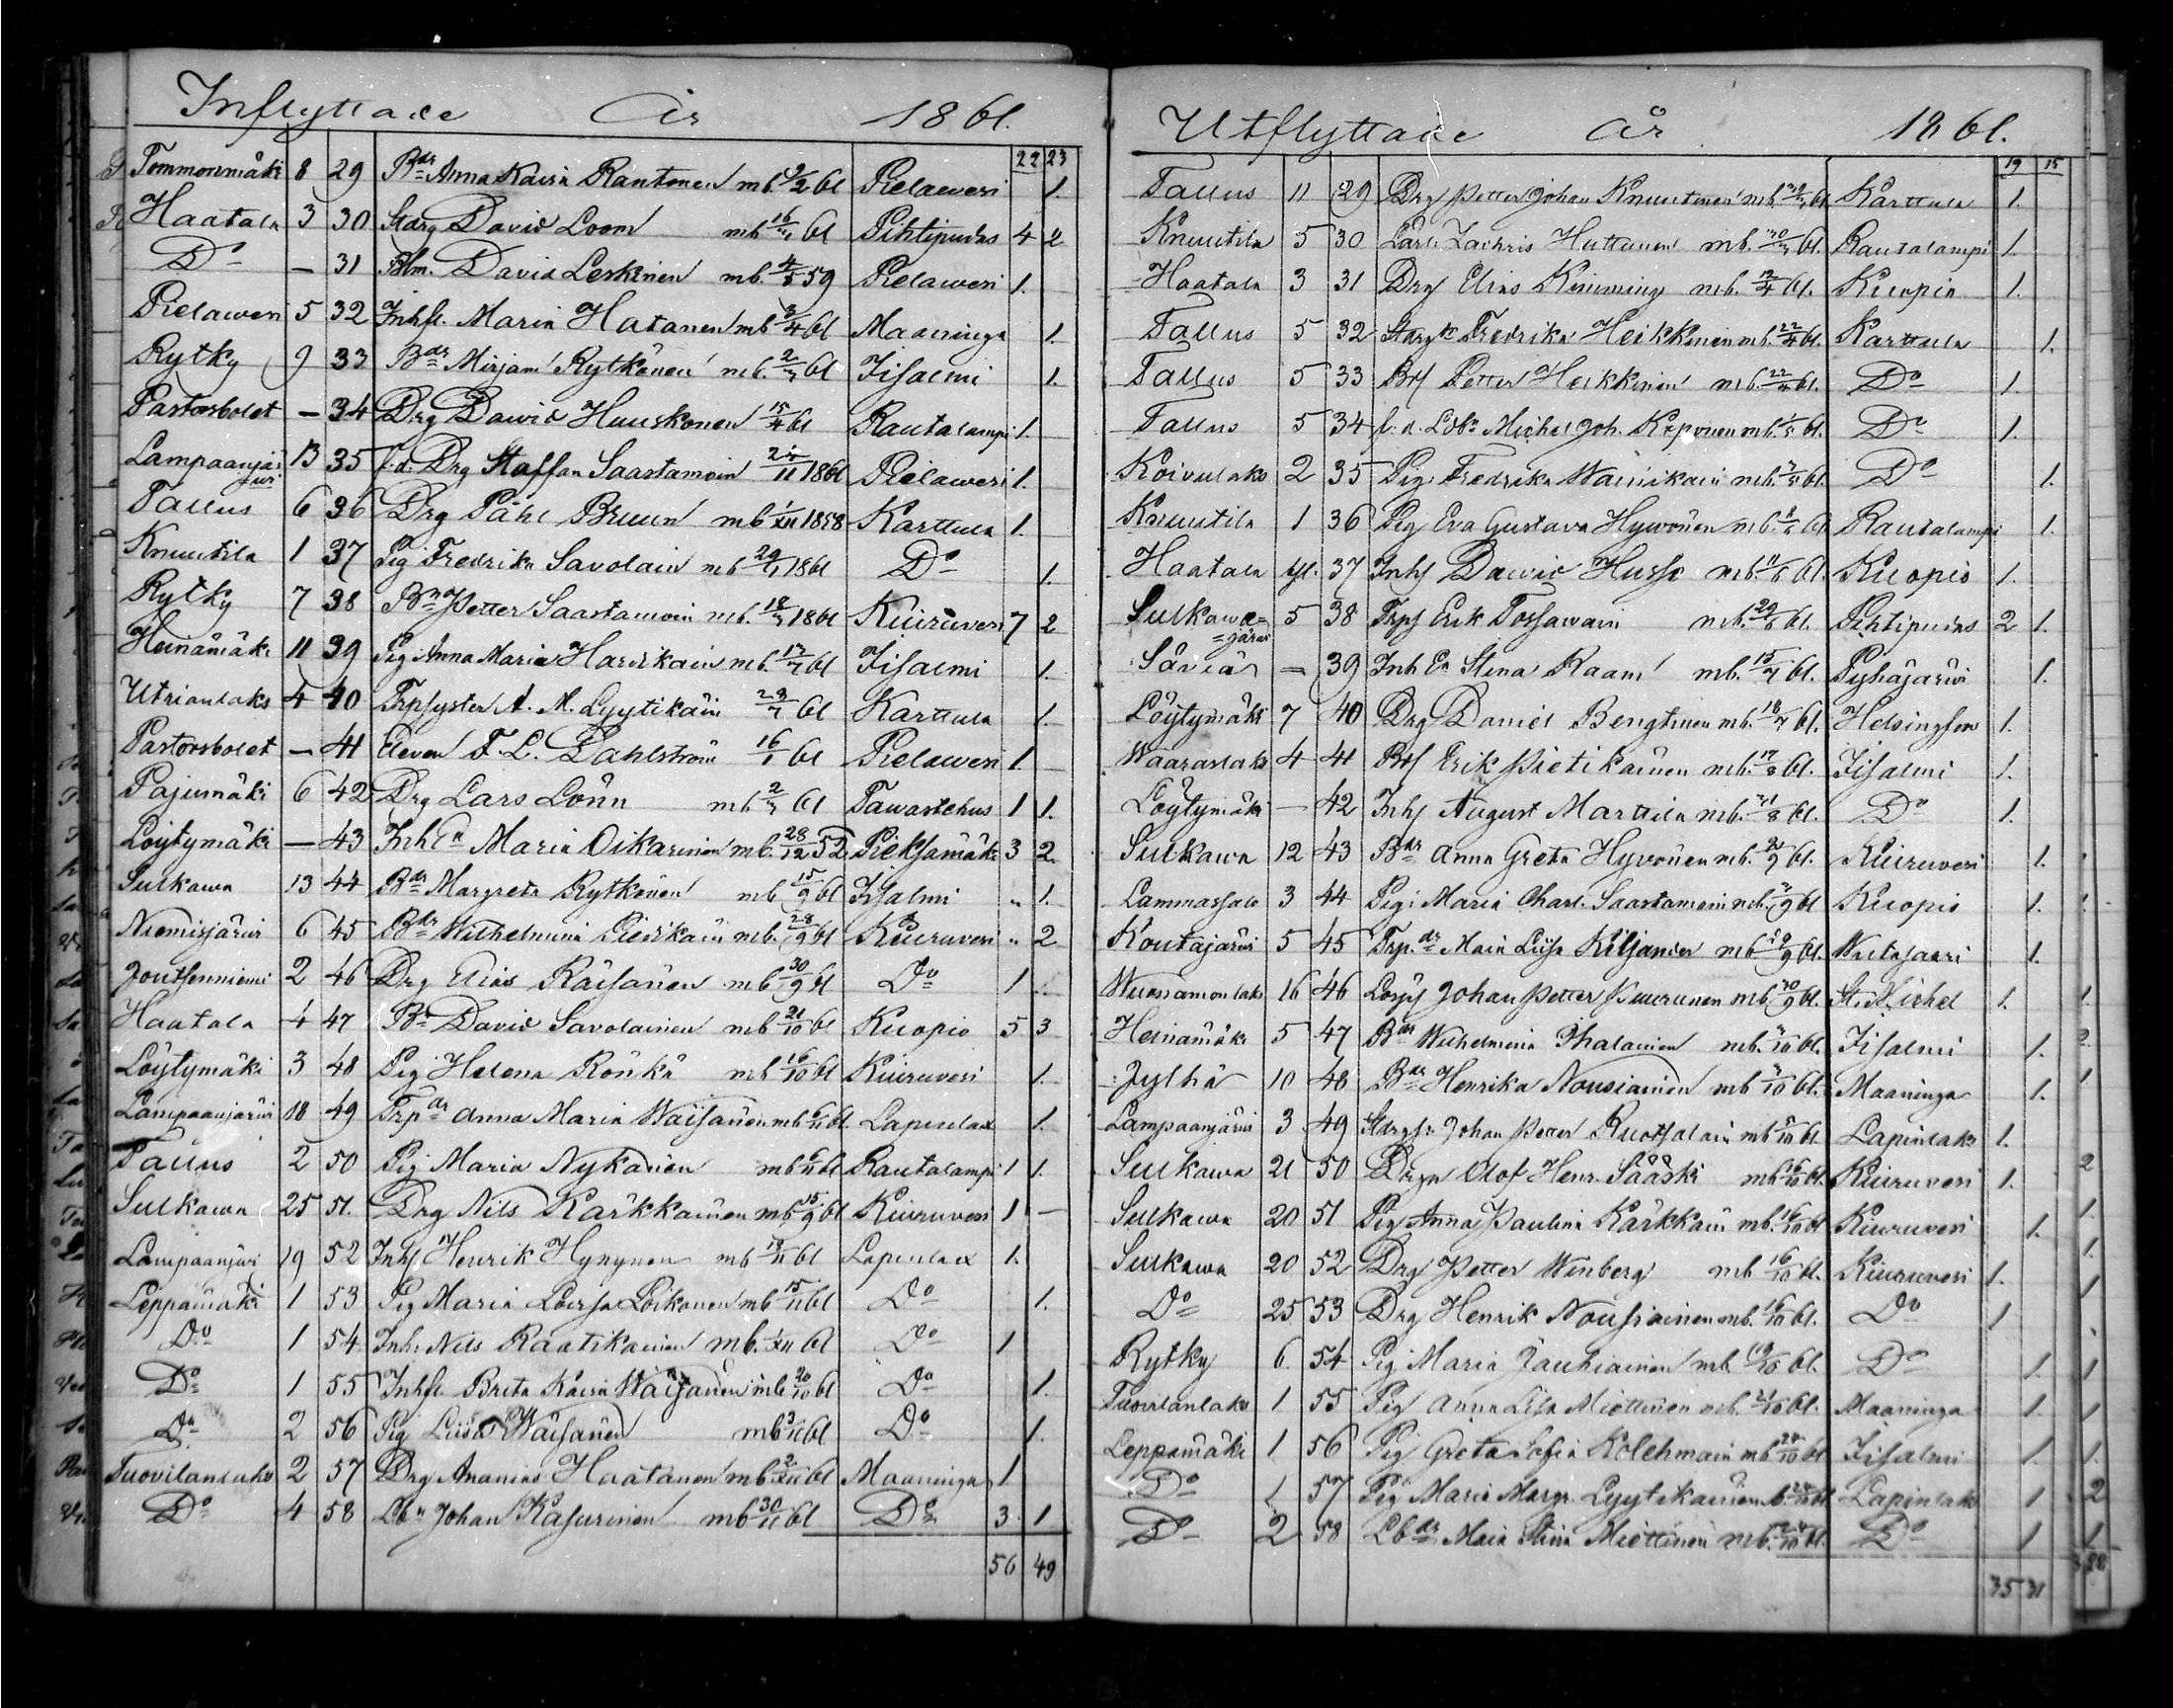 Inflyttade År 1861.
22 23
Tommonmäki 8 29 Bdr Anna Kaisa Rantonen mb 9/2 61 Pielawesi 1.
Haatala 3 30 Stdrg David Loom mb 16/4 61 Pihtipudas 4 2
Do — 31 Blm. David Leskinen mb. 4/5 59 Pielawesi 1.
Pielawesi 5 32 Inhfl. Maria Hatanen mb 3/4 61 Maaninga 1.
Rytky 9 33 Bdr Mirjam Rytkönen mb. 2/3 61 Iisalmi 1.
Pastorsbolet — 34 Drg David Huuskonen 15/4 61 Rautalampi 1.
Lampaanjärwi 13 35 f.d. Drg Staffan Saastamoin 1861 Pielawesi 1.
Tallus 6 36 Drg Påhl Bruun mb 1/XII 1858 Karttula 1.
Knuutila 1 37 Pig Fredrika Savolain mb 1861 Do 1.
Rytky 7 38 Bn Petter Saastamoin mb. 18/3 1861 Kiuruvesi 7 2
Heinämäki 11 39 Pig Anna Maria Harikain mb. 17/7 61 Iisalmi 1.
Utrianlaks 4 40 Trpsyster A. M. Lyytikäin 61 Karttula 1.
Pastorsbolet — 41 Eleven F. L. Dahlström 61 Pielawesi 1.
Pajumäki 6 42 Drg Lars Lönn mb 2/3 61 Tawastehus 1 1.
Löytymäki — 43 Inh En Maria Oikarinen mb. 28/12 52. Pieksämäki 3 2.
Sulkawa 13 44 Bdr Margreta Rytkönen mb 15/9 61 Iisalmi " 1.
Niemisjärwi 6 45 Bdr Wilhelmina Pierikäin mb. 28/9 61 Kiuruvesi " 2
Joutsenniemi 2 46 Drg Elias Räisänen mb 30/9 61 Do 1
Haatala 4 47 Bn David Savolainen mb 21/10 61 Kuopio 5 3
Löytymäki 3 48 Pig Helena Rönkä mb 16/10 61 Kiuruvesi 1.
Lampaanjärwi 18 49 Trpdr Anna Maria Waisänen mb 6/11 61. Lapinlax 1.
Tallus 2 50 Pig Maria Nykänen mb 6/11 61 Rautalampi 1 1.
Sulkawa 25 51. Drg Nils Kärkkäinen mb 15/9 61 Kiuruvesi 1 —
Lampaanjärwi 19 52 Inhs Henrik Hynynen mb 61 Lapinlax 1.
Leppämäki 1 53 Pig Maria Lovisa Loikanen mb 15/11 61 Do 1.
Do 1 54 Inhs Nils Raatikainen mb. 1/XII 61 Do 1
Do 1 55 Inhfl Brita Kaisa Waisänen mb 20/10 61 Do 1.
Do 2 56 Pig Liisa Wäisänen mb 3/11 61 Do 1.
Tuovilanlaks 2 57 Drg Ananias Haatanen mb 2/XII 61 Maaninga 1
Do 4 58 Lbn Johan Kasurinen mb 30/11 61 Do 3 1
56 49
Utflyttade år 1861.
19 15
Tallus 11 29 Drg Petter Johan Knuutinen mb. 61 Karttula 1.
Knuutila 5 30 Zachris Huttunen mb. 61. Rautalampi 1.
Haatala 3 31 Drg Elias Kimming mb. 12/4 61. Kuopio 1.
Tallus 5 32 Fredrika Heikkinen mb. 22/4 61. Karttula 1.
Tallus 5 33 Petter Heikkinen mb. 22/4 61. Do 1.
Tallus 5 34 f.d. Ldbn Michel Joh. Kapanen mb. 61. Do 1.
Koivulaks 2 35 Pig Fredrika Wainikain mb. 61. Do 1.
Knuutila 1 36 Pig Eva Gustava Hywönen mb. 61 Rautalampi 1.
Haatala 37 Inhs David Husso mb. 61. Kuopio 1.
Sulkawa=
=järwi 5 38 Trps Erik Tossawain mb. 61. Pihtipudas 2 1.
Säviä — 39 Inh En Stina Raam mb. 15/7 61. Pyhäjärwi 1.
Löytymäki 7 40 Drg Daniel Bengtman mb. 18/7 61. Helsingfors 1.
Waaraslaks 4 41 Erik Pietikäinen mb. 17/8 61. Iisalmi 1.
Löytymäki — 42 Inhs August Marttila mb. 61. Do 1.
Sulkawa 12 43 Bdr Anna Greta Hyvönen mb. 61. Kiuruvesi 1.
Lammassalo 3 44 Pig: Maria Charl. Saastamoin mb. 61 Kuopio 1.
Koutajärwi 5 45 Trp.dr Maia Lisa Kiljander mb 61. Wiitasaari 1.
Wuonamonlaks 16 46 Johan Petter Kuurunen mb 30/9 61. St. Michel 1.
Heinämäki 5 47 Bdr Wilhelmina Ihalainen mb. 61. Iisalmi 1.
Jylhä 10 48 Bdr Henrika Nousiainen mb 61. Maaninga 1.
Lampaanjärwi 3 49 Johan Petter Ruotsalain mb 61. Lapinlaks 1.
Sulkawa 21 50 Drgn Olof Henr. Sääski mb 61. Kiuruvesi 1.
Sulkawa 20 51 Pig Anna Paulina Kärkkäin mb. 61 Kiuruvesi 1.
Sulkawa 20 52 Drg Petter Winberg mb 16/10 61. Kiuruvesi 1.
Do 25 53 Drg Henrik Nousiainen mb. 16/10 61. Do 1
Rytky 6. 54 Pig Maria Jauhiainen mb. 19/10 61. Do 1
Tuovilanlaks 1 55 Pig Anna Lisa Miettinen mb. 21/10 61. Maaninga 1.
Leppämäki 1 56 Pig Greta Sofia Kolehmain mb 61 Iisalmi 1.
Do 1 57 Pig Maria Margr. Lyytikäinen 61 Lapinlaks 1
Do 2 58 Lbdr Maia Stina Miettinen mb. 61. Do 1
35 31